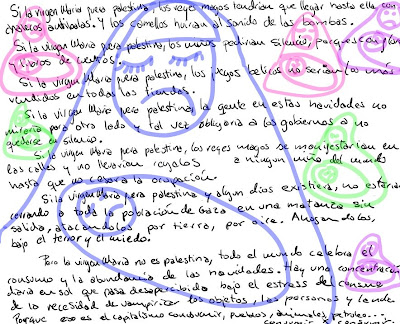 Si la virgen María fuera palestina, los reyes magos tendrían que llegar hasta ella con
chalecos antibalas. Y los camellos huirían al sonido de las bombas.
Si la virgen María fuera palestina, los niños pedirían silencio, parques con flores
y libros de cuentos.
Si la virgen María fuera palestina, los juguetes bélicos no serían los más
vendidos en todas las tiendas.
Si la virgen María fuera palestina, la gente en estas navidades no
miraría para otro lado y tal vez obligaría a los gobiernos a no
quedarse en silencio.
Si la virgen María fuera palestina, los reyes magos se manifestarían en
las calles y no llevarían regalos a ningún niño del mundo
hasta que no cesara la ocupación.
Si la virgen María fuera palestina y algún dios existiera, no estarían
cerrando a toda la población de Gaza en una matanza sin
salida, atacándolos por tierra, por aire. Ahogándolos,
bajo el terror y el miedo.
Pero la virgen María no es palestina, todo el mundo celebra el
consumo y la abundancia de las navidades. Hay una concentración
diaria en sol que pasa desapercibida bajo el estress de consumo
de la necesidad de vampirizar los objetos, las personas y
Porque eso es el capitalismo consumir, pueblos, animales, petróleo...
consumir y consumir